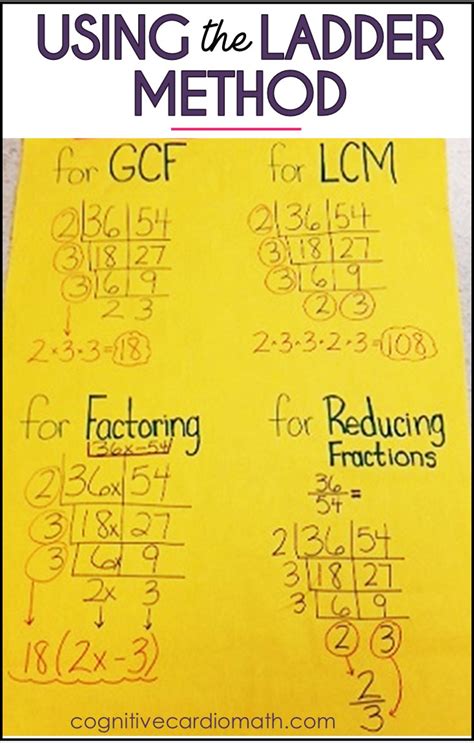 USING the LADDER
METHOD
for GCF
2 36 54
3 18 27
3 6 9
2 3
2·3·3=18
for LCM
2 36 54
3 18 27
3 6 9
2 3
2·3·3·2·3=108
for Factoring
36x-54
2 36x 54
3 18x 27
3 6x 9
2x 3
18(2x-3)
for Reducing
Fractions
36/54 =
2 36 54
3 18 27
3 6 9
2 3
2/3
cognitivecardiomath.com